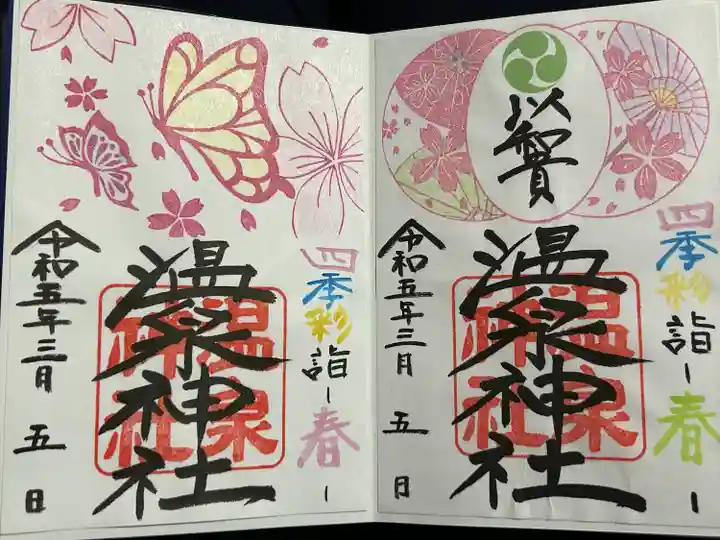 四季彩詣-春-
温泉神社
温泉神社
令和五年三月五日
四季彩詣-春-
温泉神社
温泉神社
令和五年三月五日